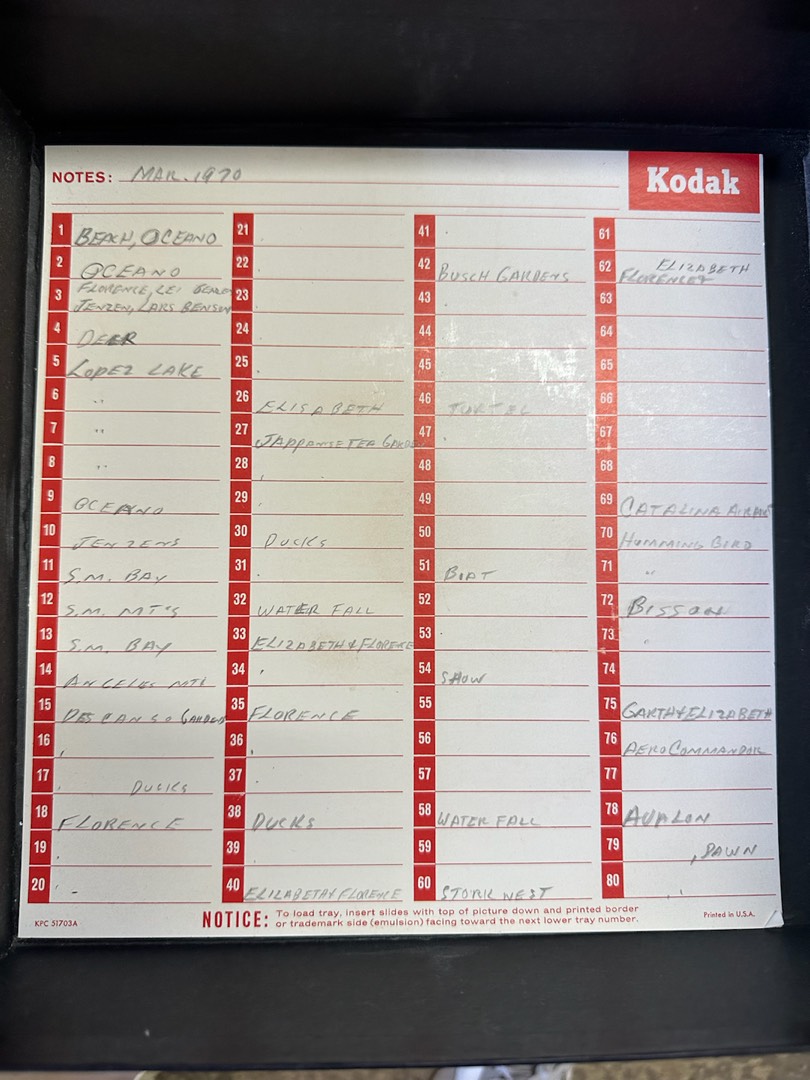 NOTES: MAR. 1970
Kodak
1 BEACH, OCEANO
2 OCEANO
3 FLORENCE,
JENZEN, LARS BENSON
4 DEER
5 LOPEZ LAKE
6 "
7 "
8 "
9 OCEANO
10 JENZENS
11 S.M. BAY
12 S.M. MT'S
13 S.M. BAY
14 ANGELES MTS
15 DESCANSO GARDEN
16 ,
17 , DUCKS
18 FLORENCE
19 ,
20 , -
21
22
23
24
25
26 ELISABETH
27 JAPPANESE TEA GARDEN
28
29
30 DUCKS
31
32 WATER FALL
33 ELIZABETH & FLORENCE
34 ,
35 FLORENCE
36 ,
37
38 DUCKS
39
40 ELIZABETH & FLORENCE
41
42 BUSCH GARDENS
43
44
45
46 TURTEL
47
48
49
50
51 BOAT
52
53
54 SHOW
55
56
57
58 WATER FALL
59
60 STORK NEST
61
62 ELIZABETH
FLORENCE &
63
64
65
66
67
68
69 CATALINA
70 HUMMING BIRD
71 "
72 BISSON
73 "
74
75 GARTH & ELIZABETH
76 AERO COMMANDOR
77
78 AVALON
79 , DAWN
80 ,
KPC 51703A
NOTICE: To load tray, insert slides with top of picture down and printed border
or trademark side (emulsion) facing toward the next lower tray number.
Printed in U.S.A.